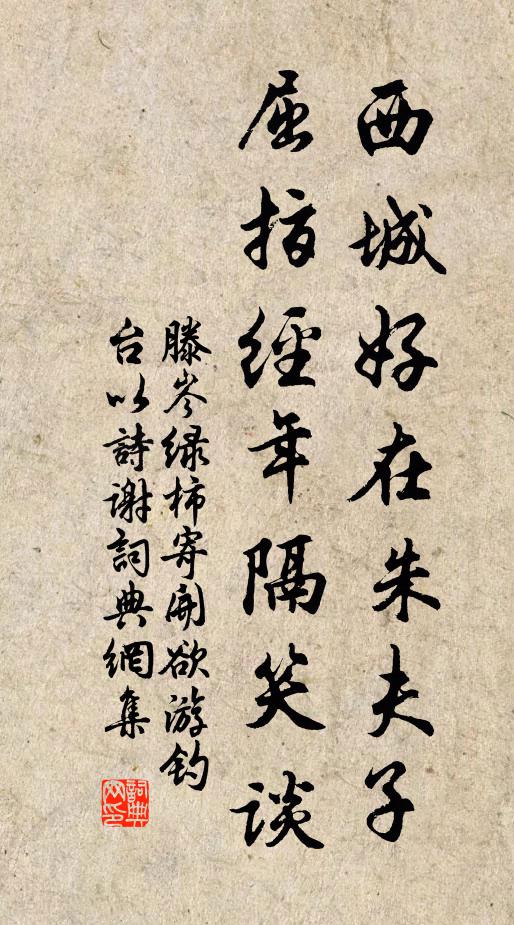 西城好在朱夫子
屈指經年隔笑談
滕岑緑柿寄開欲游钓
台以詩谢詞典網集
詞典网印